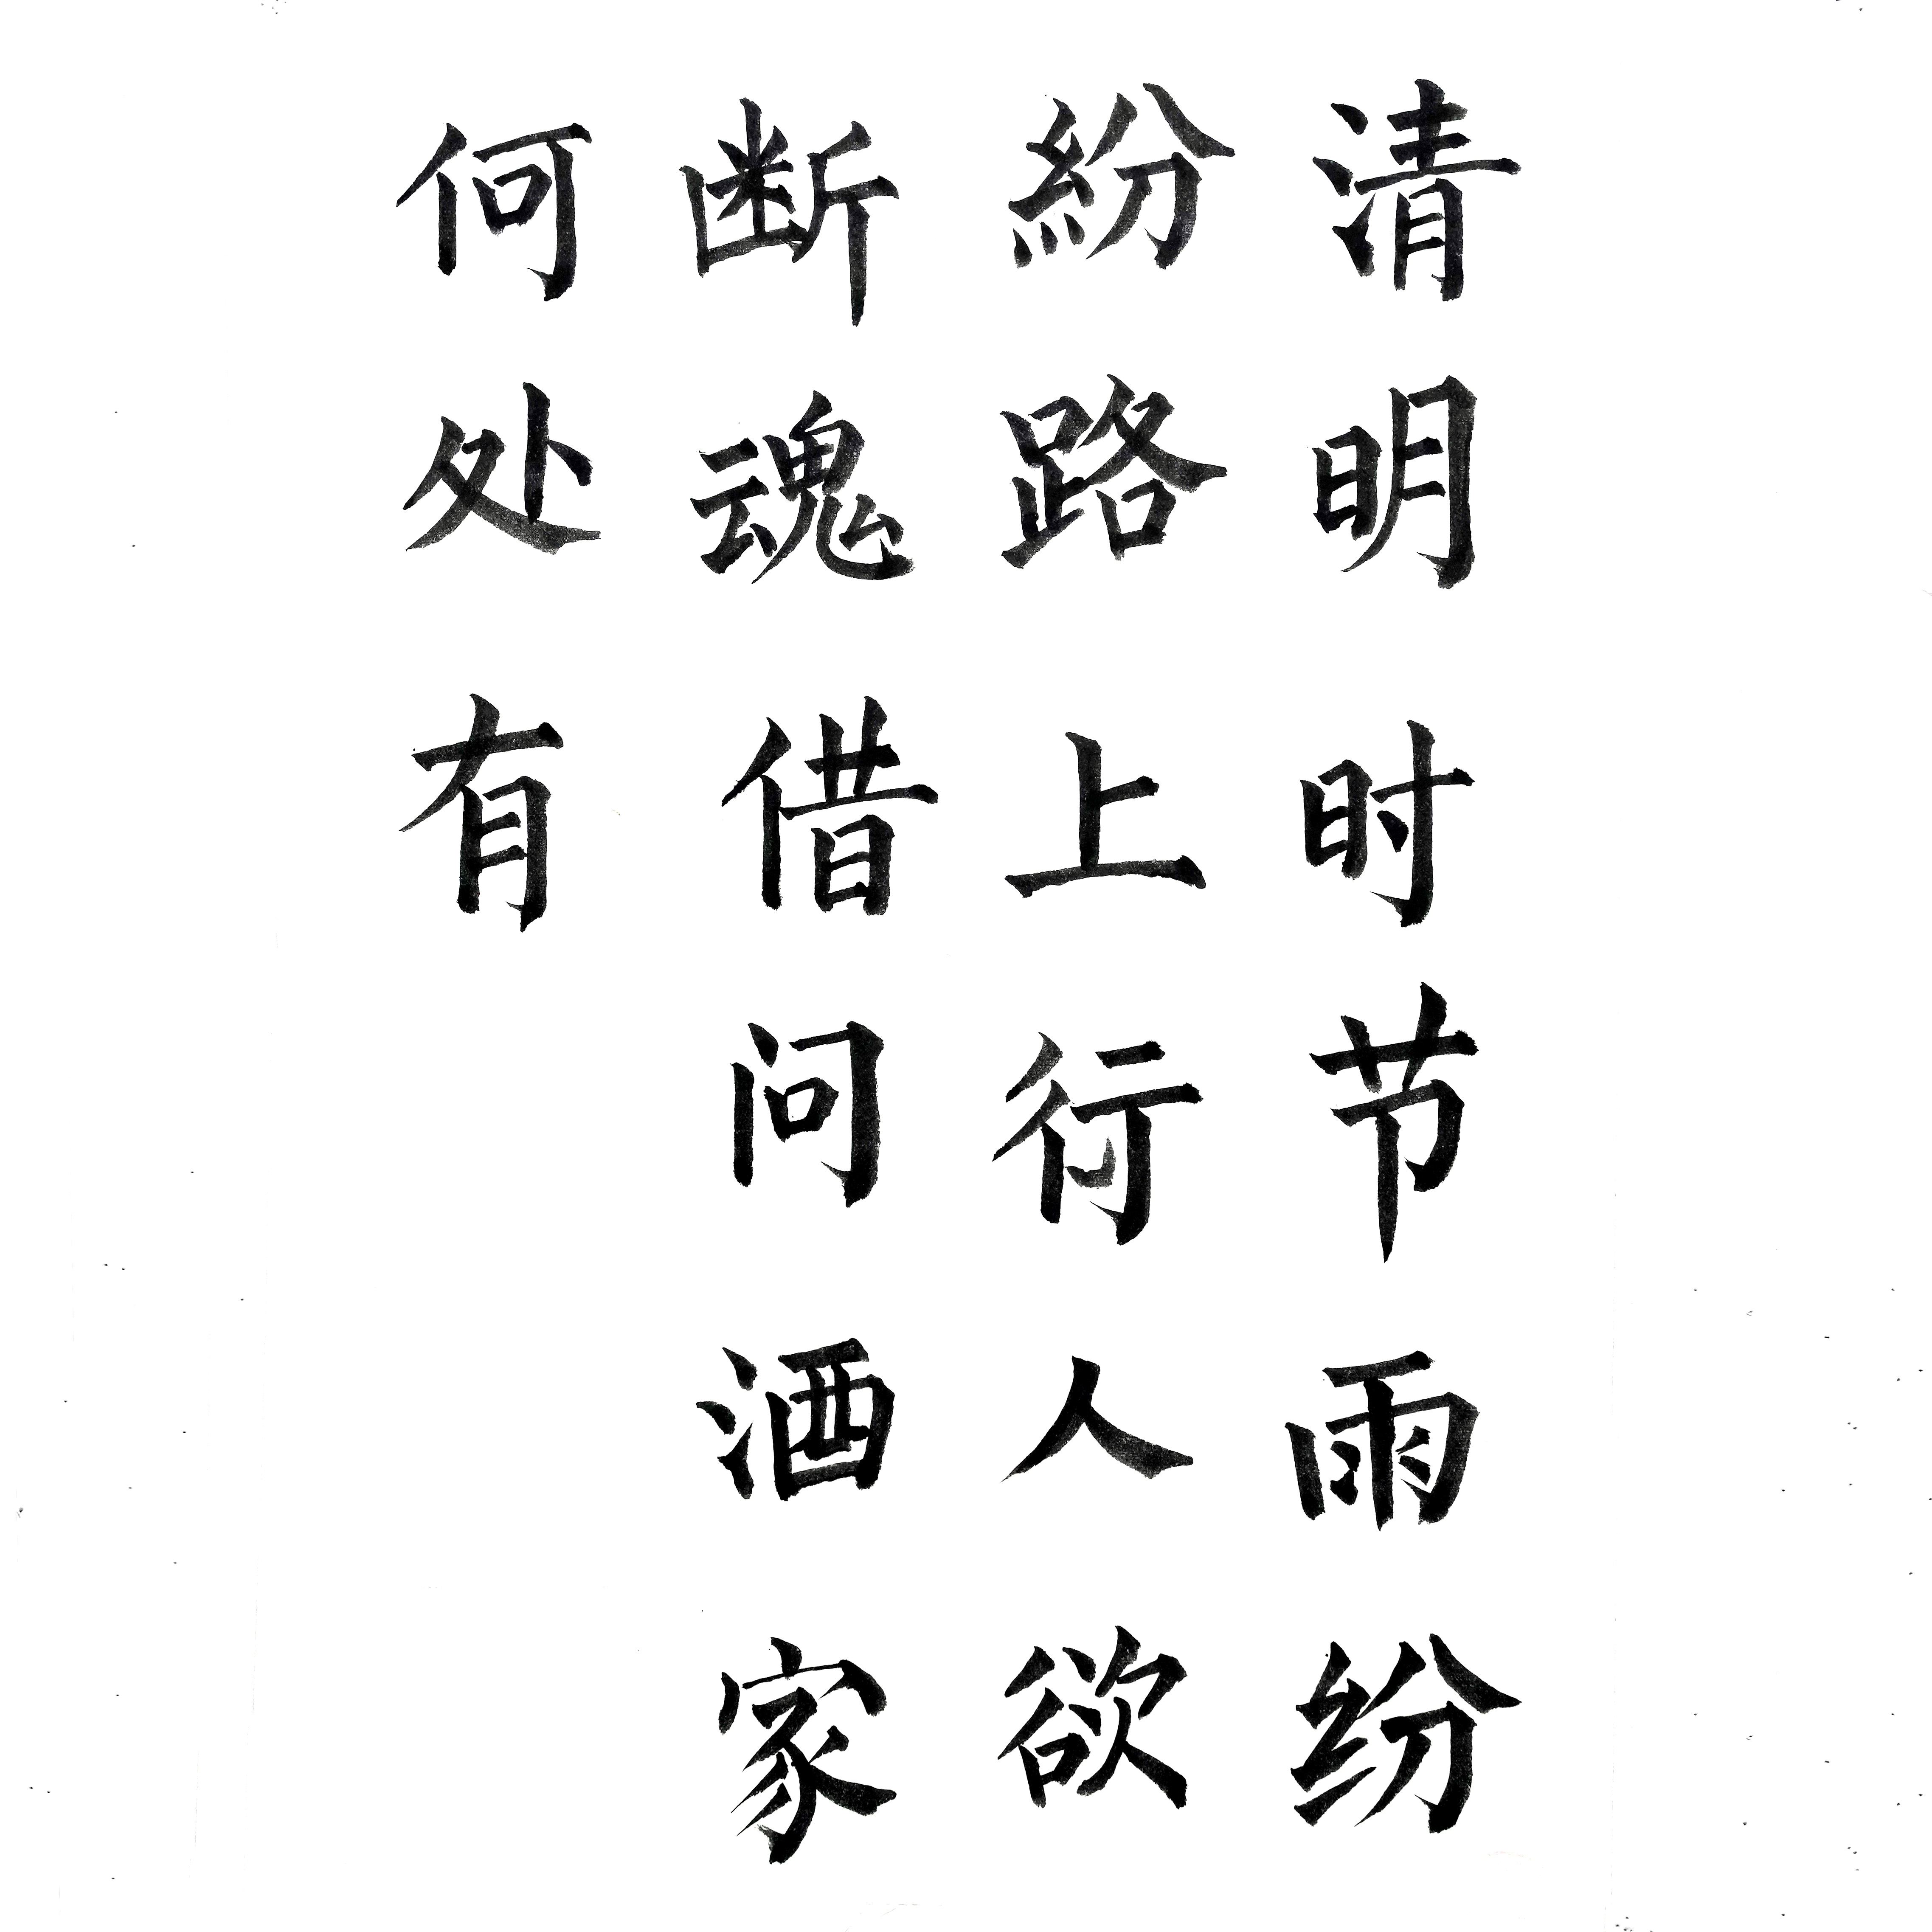 清明时节雨纷
紛路上行人欲
断魂借问酒家
何处有